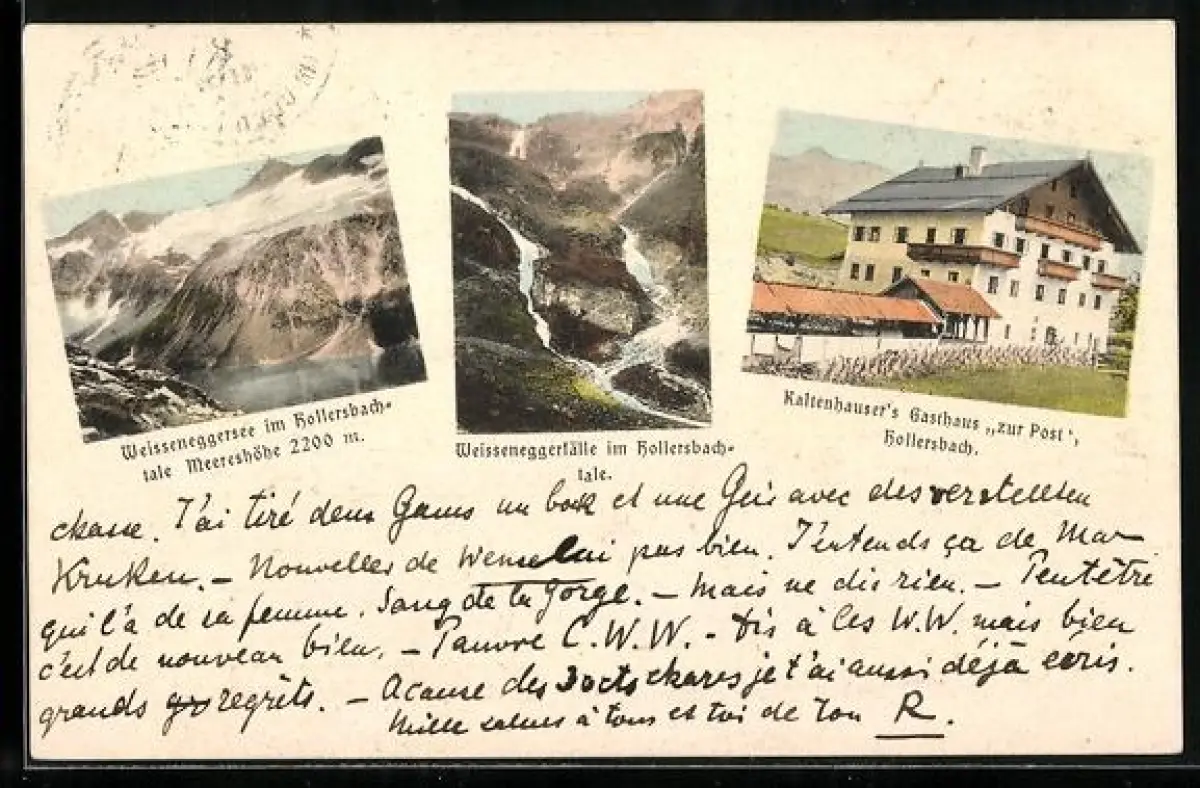 Weisseneggersee im Hollersbach-
tale Meereshöhe 2200 m.
Weisseneggerfälle im Hollersbach-
tale.
Kaltenhauser's Gasthaus „zur Post",
Hollersbach.
chasse. J'ai tiré deux Gams un bock et une Geis avec des verstellten
Kruken. – Nouvelles de pas bien. J'entends ça de Mar
qui l'a de sa femme. Sang de la gorge. – Mais ne dis rien. – Peutêtre
c'est de nouveau bien. – Pauvre C.W.W. – Dis à les W.W. mais bien
grands regrêts. – Acause des je t'ai aussi déjà ecris.
Mille à tous et toi de ton R.